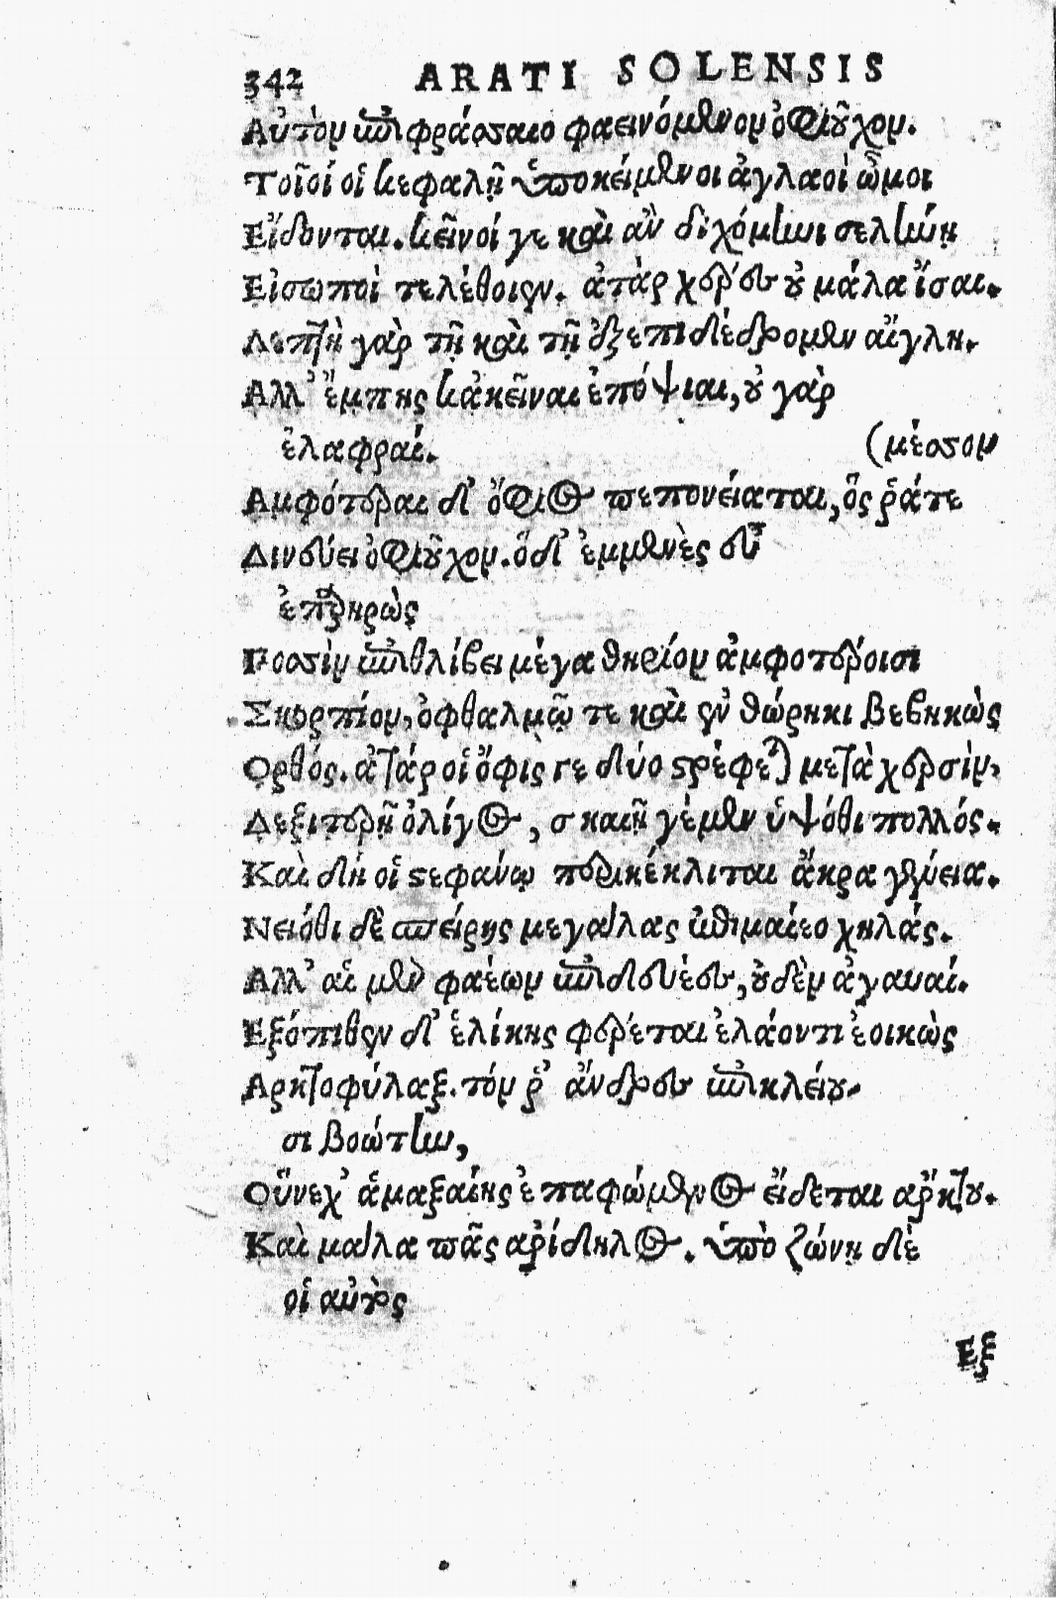 342 ARATI SOLENSIS
Αὐτὸν ἐπιφράσσαιο φαεινόμενον ὀφιοῦχον.
Τοῖοί οἱ κεφαλῇ ὑποκείμενοι ἀγλαοὶ ὦμοι
Εἴδονται. κεῖνοί γε καὶ ἂν διχόμηνι σελήνῃ
Εἰσωποὶ τελέθοιεν. ἀτὰρ χέρες οὐ μάλα ἴσαι.
Λεπτὴ γὰρ τῇ καὶ τῇ ἐπιδέδρομεν αἴγλη.
Αλλ' ἔμπης κἀκεῖναι ἐπόψιαι, οὐ γὰρ
ἐλαφραί. (μέσσον
Αμφότεραι δ' ὄφιος πεπονείαται, ὅς ῥάτε
Δινεύει ὀφιοῦχον. ὁ δ' ἐμμενὲς εὖ
ἐπαρηρὼς
Ποσσὶν ἐπιθλίβει μέγα θηρίον ἀμφοτέροισι
Σκορπίον, ὀφθαλμῷ τε καὶ ἐν θώρηκι βεβηκὼς
Ορθός. ἀτάρ οἱ ὄφις γε δύο στρέφεται μετὰ χερσὶν,
Δεξιτερῇ ὀλίγος, σκαιῇ γέμεν ὑψόθι πολλός.
Καὶ δή οἱ στεφάνῳ περικέκλιται ἄκρα γένεια.
Νειόθι δὲ σπείρης μεγάλας ἐπιμαίεο χηλάς.
Αλλ' αἱ μὲν φαέων ἐπιδευέες, οὐδὲν ἀγαυαί.
Εξόπιθεν δ' ἑλίκης φέρεται ἐλάοντι ἐοικὼς
Αρκτοφύλαξ. τόν ῥ' ἄνδρες ἐπικλείου-
σι βοώτην,
Οὕνεχ' ἁμαξαίης ἐπαφώμενος εἴδεται ἄρκτου.
Καὶ μάλα πᾶς ἀρίδηλος. ὑπὸ ζώνῃ δὲ
οἱ αὐτὸς
Εξ